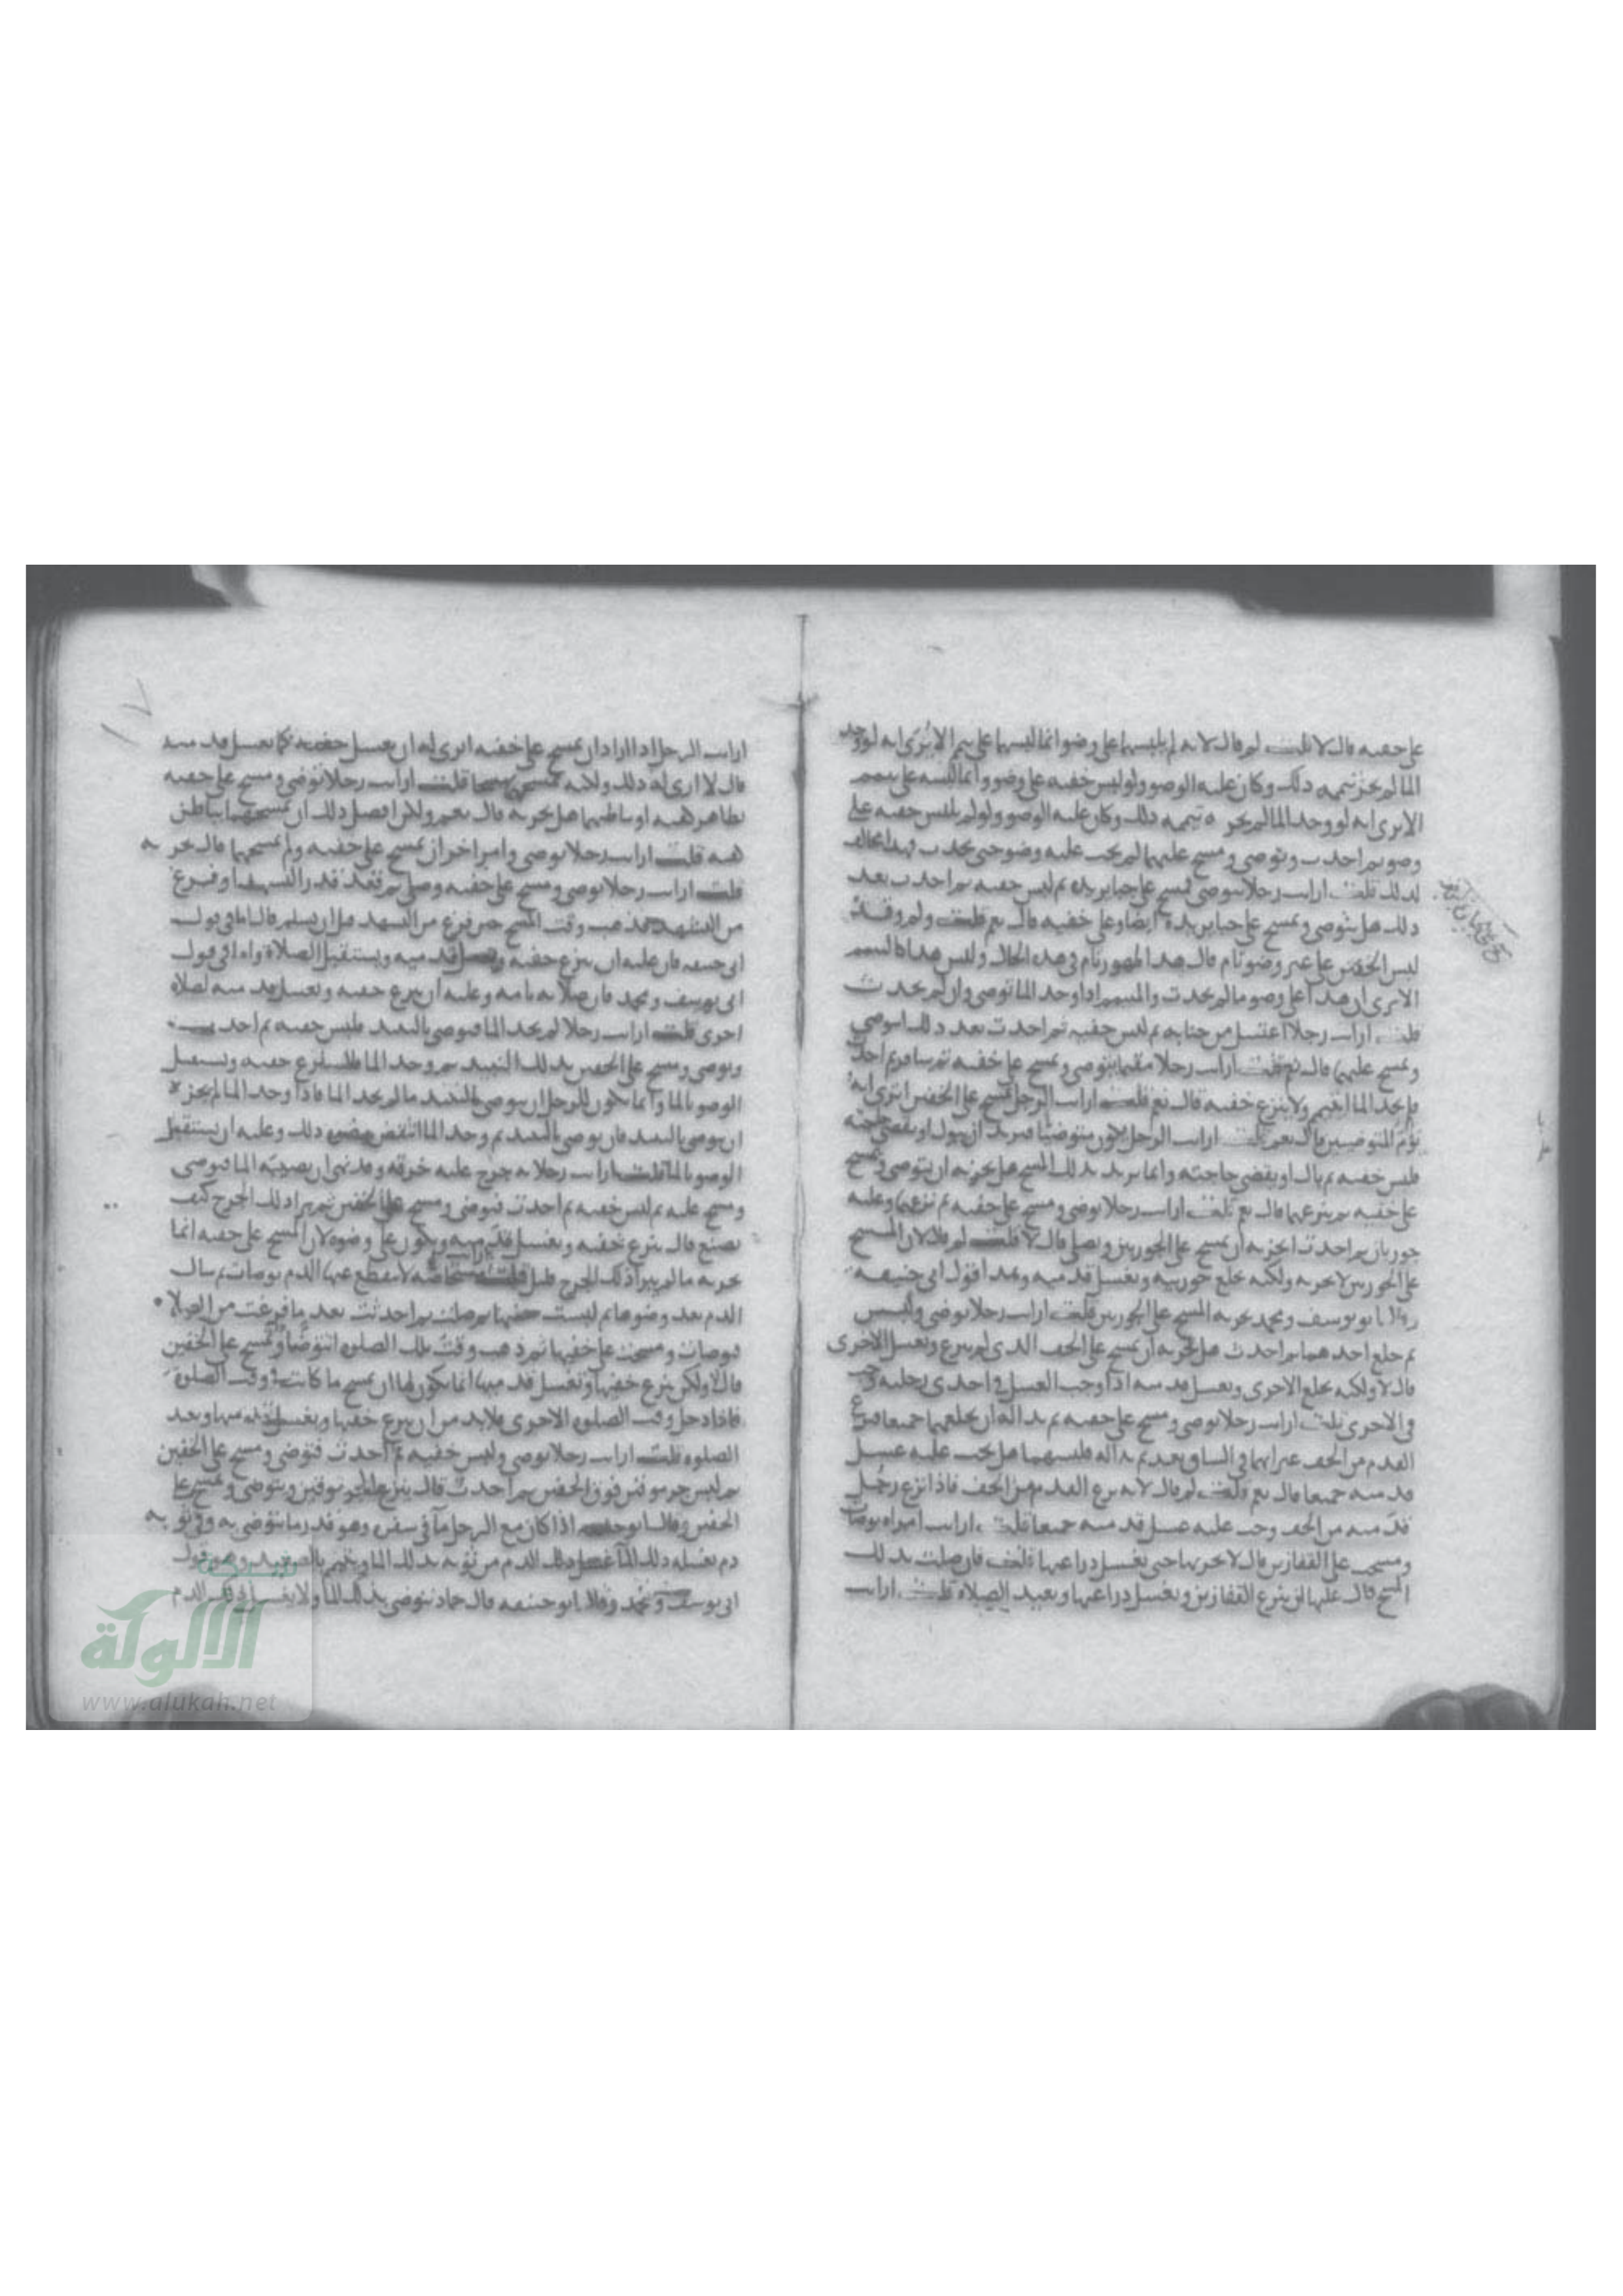 على خفيه قال لا قلت لم قال لانه لم يلبسهما على وضو انما لبسهما على تيمم الا ترى انه لو وجد
الما لم يجز تيممه ذلك وكان عليه الوضو ولو لبس خفيه على وضو وانما لبسه على تيمم
الا ترى انه لو وجد الما لم يجزه تيممه ذلك وكان عليه الوضو ولو لم يلبس خفيه على
وضو ثم احدث وتوضى ومسح عليهما لم يجب عليه وضو حتى يحدث فهذا مخالف
لذلك قلت ارايت رجلا توضى فمسح على جباير يده ثم لبس خفيه ثم احدث بعد
ذلك هل يتوضى ويمسح على جباير يده ايضا وعلى خفيه قال نعم قلت ولم وقد
لبس الخفين على غير وضو تام قال هذا طهور تام في هذه الحال وليس هذا كالتيمم
الا ترى ان هذا على وضو ما لم يحدث والمتيمم اذا وجد الما توضى وان لم يحدث
قلت ارايت رجلا اغتسل من جنابه ثم لبس خفيه ثم احدث بعد ذلك ايتوضى
ويمسح عليهما قال نعم قلت ارايت رجلا مقيما يتوضى ويمسح على خفيه ثم سافر ثم احدث
فلم يجد الما ايتيمم ولا ينزع خفيه قال نعم قلت ارايت الرجل يمسح على الخفين اترى له ان
يؤم المتوضيين قال نعم قلت ارايت الرجل يكون متوضيا فيريد ان يبول او يقضي حاجته
فلبس خفيه ثم بال او يقضي حاجته وانما يريد بذلك المسح هل يجزيه ان يتوضى ويمسح
على خفيه ثم ينزعهما قال نعم قلت ارايت رجلا توضى ومسح على خفيه ثم نزعهما وعليه
جوربان ثم احدث ايجزيه ان يمسح على الجوربين ويصلي قال لا قلت لم قال لان المسح
على الجوربين لا يجزيه ولكنه يخلع جوربيه ويغسل قدميه وهذا قول ابي حنيفه
وقال ابو يوسف ومحمد يجزيه المسح على الجوربين قلت ارايت رجلا توضى ولبس
ثم خلع احدهما ثم احدث هل يجزيه ان يمسح على الخف الذي لم ينزع ويغسل الاخرى
قال لا ولكنه يخلع الاخرى ويغسل قدميه اذا وجب الغسل في احدى رجليه وجب
في الاخرى قلت ارايت رجلا توضى ومسح على خفيه ثم بدا له ان يخلعهما جميعا فنزع
القدم من الخف غير انهما في الساق بعد ثم بدا له فلبسهما هل يجب عليه غسل
قدميه جميعا قال نعم قلت لم قال لانه نزع القدم من الخف فاذا نزع رجل
قدميه من الخف وجب عليه غسل قدميه جميعا قلت ارايت امراه توضات
ومسحت على القفازين قال لا يجزيها حتى تغسل ذراعيها قلت فان صلت بذلك
المسح قال عليها ان ينزع القفازين وتغسل ذراعيها وتعيد الصلاه قلت ارايت
ارايت الرجل اذا اراد ان يمسح على خفيه اترى له ان يغسل خفيه كما يغسل قدميه
قال لا ارى له ذلك ولكنه يمسحهما مسحا قلت ارايت رجلا توضى ومسح على خفيه
بظاهر كفيه او باطنهما هل يجزيه قال نعم ولكن افضل ذلك ان يمسحهما بباطن
كفيه قلت ارايت رجلا توضى وامر اخر ان يمسح على خفيه ولم يمسحهما قال يجزيه
قلت ارايت رجلا توضى ومسح على خفيه وصلى ثم قعد قدر التشهد او فرغ
من التشهد فذهب وقت المسح حين فرغ من التشهد قبل ان يسلم قال اما في قول
ابي حنيفه فان عليه ان ينزع خفيه ويغسل قدميه ويستقبل الصلاة واما في قول
ابي يوسف ومحمد فان صلاته تامه وعليه ان ينزع خفيه ويغسل قدميه لصلاة
اخرى قلت ارايت رجلا لم يجد الما فتوضى بالنبيذ فلبس خفيه ثم احدث
وتوضى ومسح على الخفين بذلك النبيذ ثم وجد الما فلينزع خفيه ويستقبل
الوضو بالما وانما يكون للرجل ان يتوضى بالنبيذ ما لم يجد الما فاذا وجد الما لم يجزه
ان يتوضى بالنبيذ فان توضى بالنبيذ ثم وجد الما انتقض وضوه ذلك وعليه ان يستقبل
الوضو بالما قلت ارايت رجلا به جرح عليه خرقه وقد نهي ان يصيبه الما فتوضى
ومسح عليه ثم لبس خفيه ثم احدث فتوضى ومسح على الخفين ثم برا ذلك الجرح كيف
يصنع قال ينزع خفيه ويغسل قدميه ويكون على وضوه لان المسح على خفيه انما
يجزيه ما لم يبرا ذلك الجرح قلت ارايت مستحاضة لا ينقطع عنها الدم توضات ثم سال
الدم بعد وضوها ثم لبست خفيها ثم صلت ثم احدثت بعد ما فرغت من الصلاة
فتوضات ومسحت على خفيها ثم ذهب وقت تلك الصلوه اتتوضا وتمسح على الخفين
قال لا ولكن ينزع خفيها وتغسل قدميها انما يكون لها ان تمسح ما كانت في وقت الصلوة
فاذا دخل وقت الصلوه الاخرى فلا بد من ان ينزع خفيها وتغسل قدميها وتعيد
الصلوه قلت ارايت رجلا توضى ولبس خفيه ثم احدث فتوضى ومسح على الخفين
ثم لبس جرموقين فوق الخفين ثم احدث قال ينزع الجرموقين ويتوضى ويمسح على
الخفين وقال ابو حنيفه اذا كان مع الرجل ما في سفر وهو قدر ما يتوضى به وفي ثوبه
دم يغسله ذلك الما غسل ذلك الدم من ثوبه بذلك الما ويتيمم بالصعيد وهو قول
ابي يوسف ومحمد وقال ابو حنيفه قال حماد يتوضى بذلك الما ولا يغسل ذلك الدم
شبكة
الالوكة
www.alukah.net